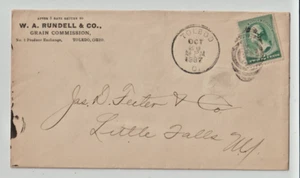 AFTER 5 DAYS RETURN TO
W. A. RUNDELL & CO.,
GRAIN COMMISSION,
No. Produce Exchange, TOLEDO, OHIO.
TOLEDO
OCT
1887
O.
Jas. D. Feeter & Co
Little Falls
NY